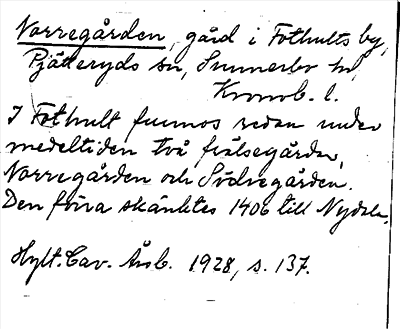 Norregården, gård i Fothults by,
Pjätteryds sn, Sunnerbo hd,
Kronob. l.
I Fothult funnos redan under
medeltiden två frälsegårdar,
Norregården och Södregården.
Den förra skänktes 1406 till Nydala.
Hylt. Cav. Årsb. 1928, s. 137.